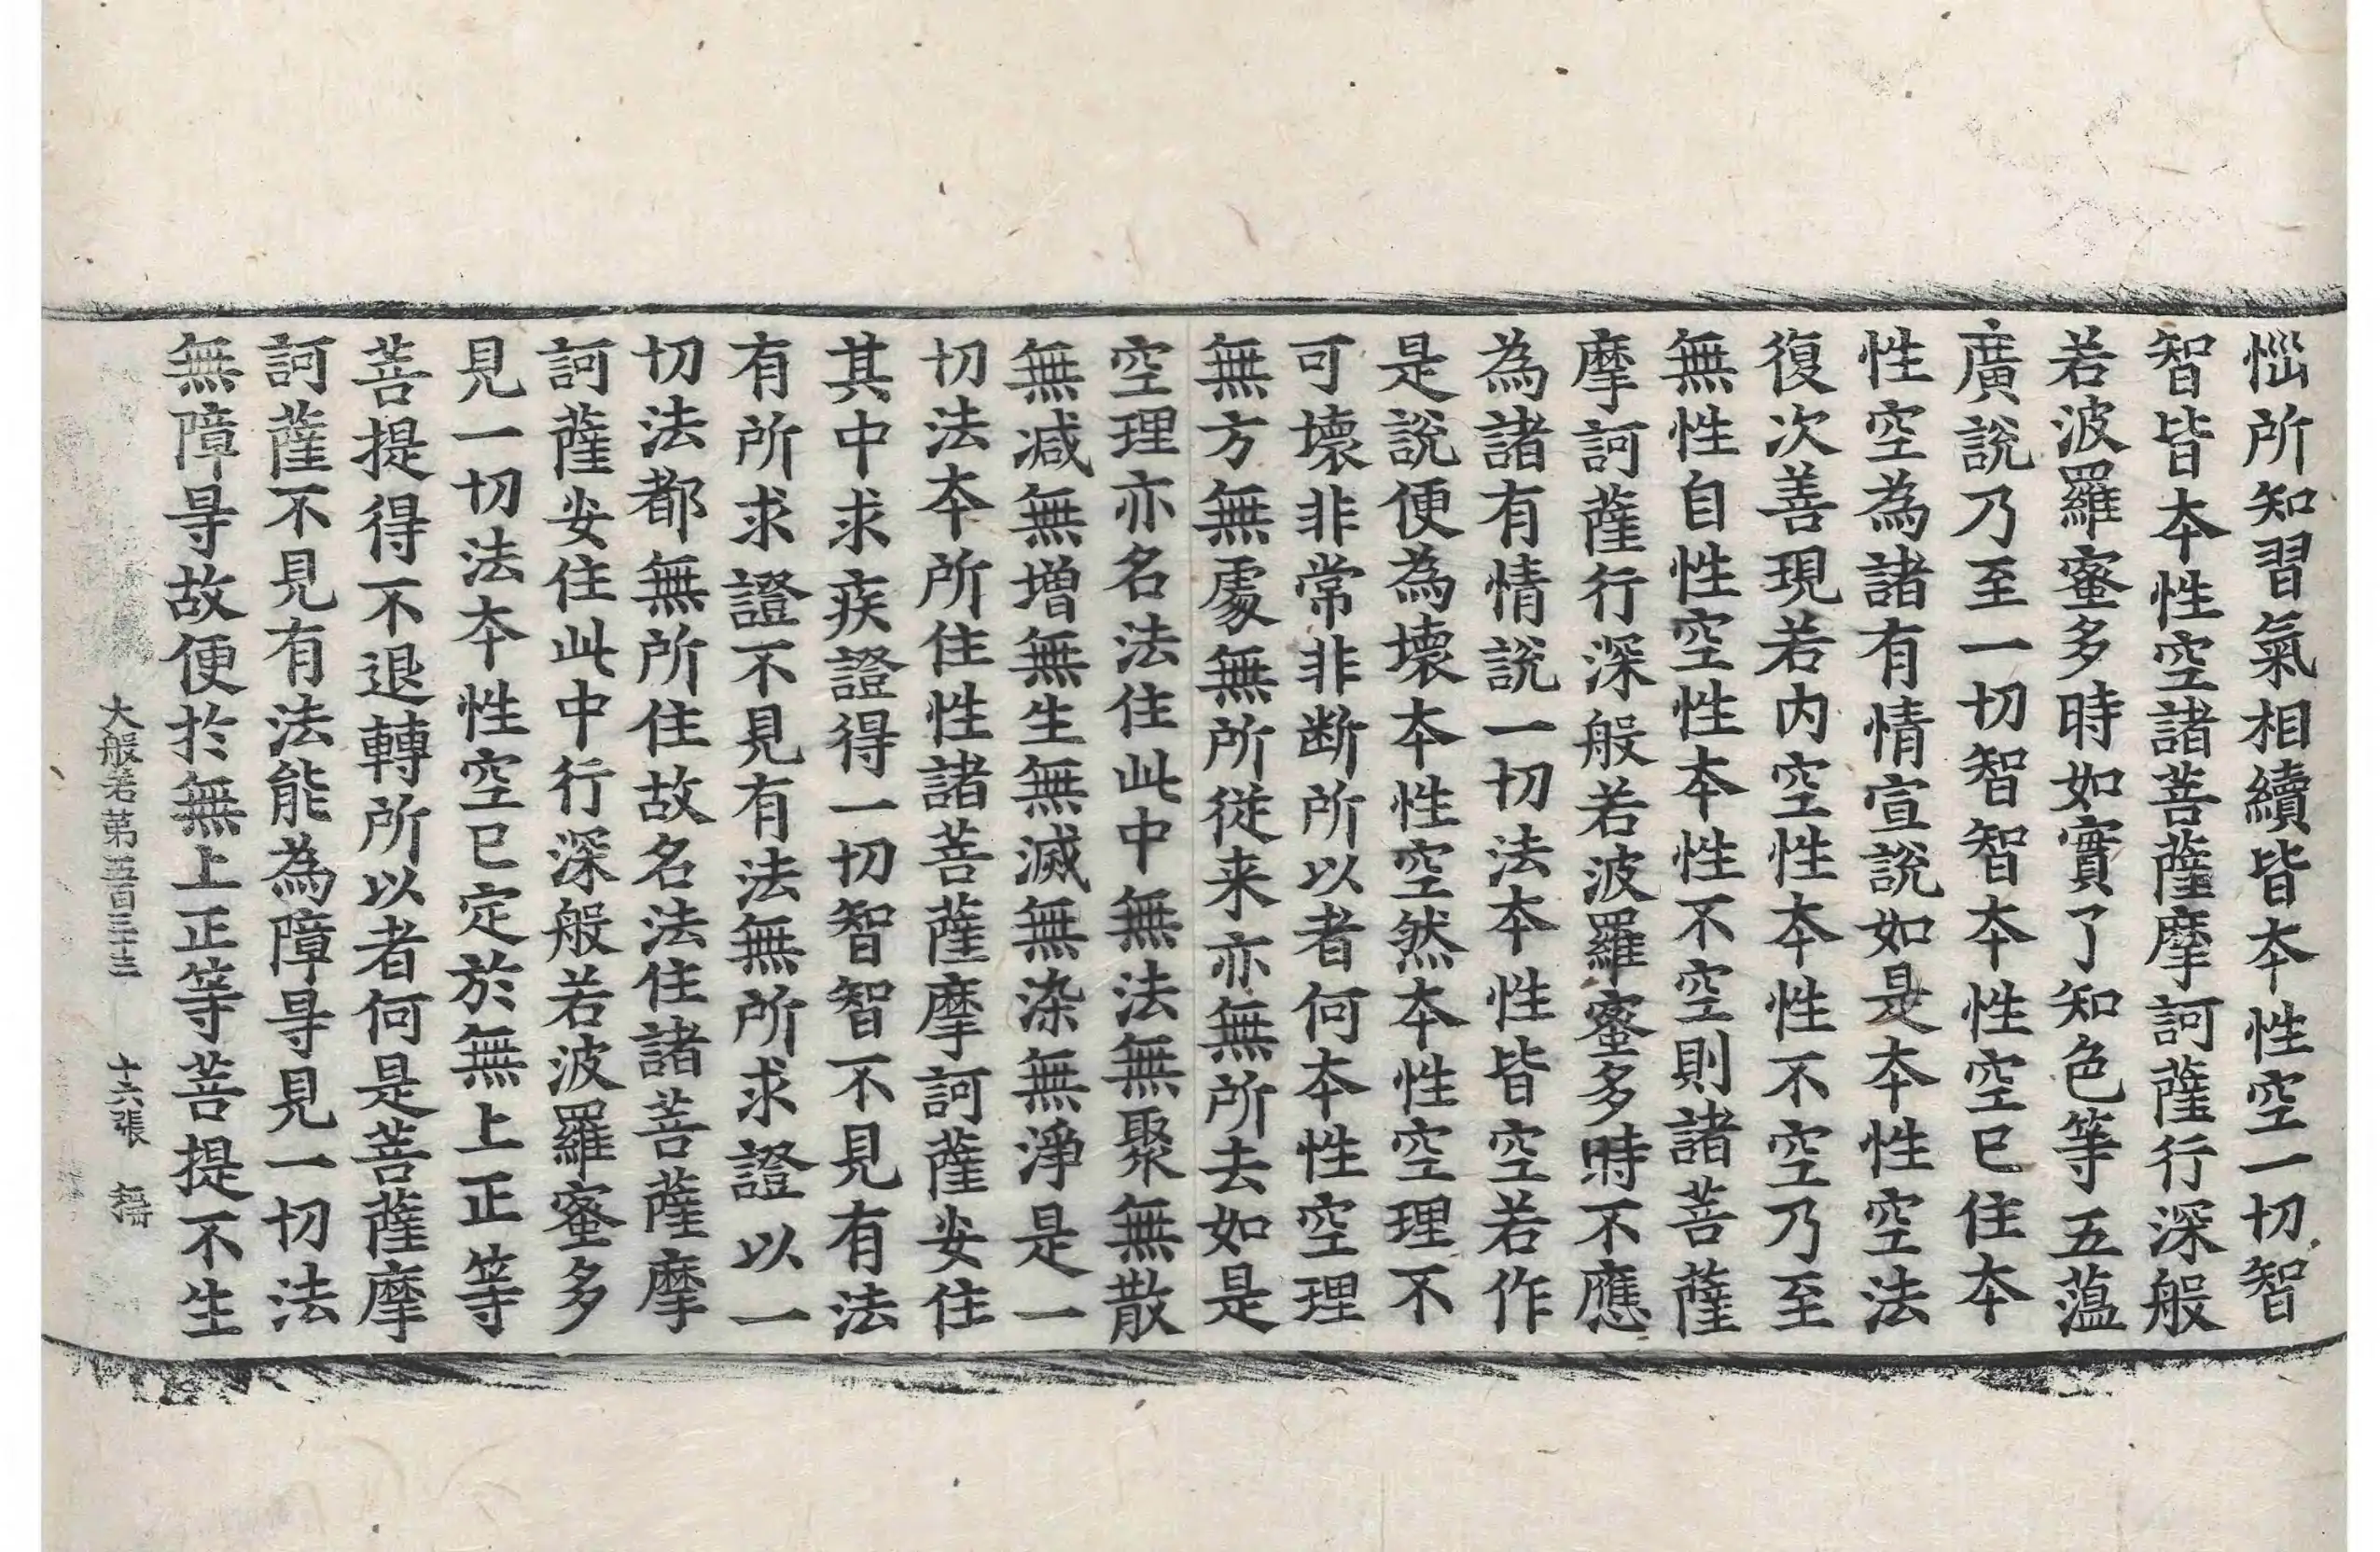 惱所知習氣相續皆本性空一切智
智皆本性空諸菩薩摩訶薩行深般
若波羅蜜多時如實了知色等五薀
廣說乃至一切智智本性空已住本
性空為諸有情宣說如是本性空法
復次善現若內空性本性不空乃至
無性自性空性本性不空則諸菩薩
摩訶薩行深般若波羅蜜多時不應
為諸有情說一切法本性皆空若作
是說便為壞本性空然本性空理不
可壞非常非断所以者何本性空理
無方無處無所從来亦無所去如是
空理亦名法住此中無法無聚無散
無减無增無生無滅無染無淨是一
切法本所住性諸菩薩摩訶薩安住
其中求疾證得一切智智不見有法
有所求證不見有法無所求證以一
切法都無所住故名法住諸菩薩摩
訶薩安住此中行深般若波羅蜜多
見一切法本性空已定於無上正等
菩提得不退轉所以者何是菩薩摩
訶薩不見有法能為障㝵見一切法
無障㝵故便於無上正等菩提不生
大般若第五百三十三 十六張